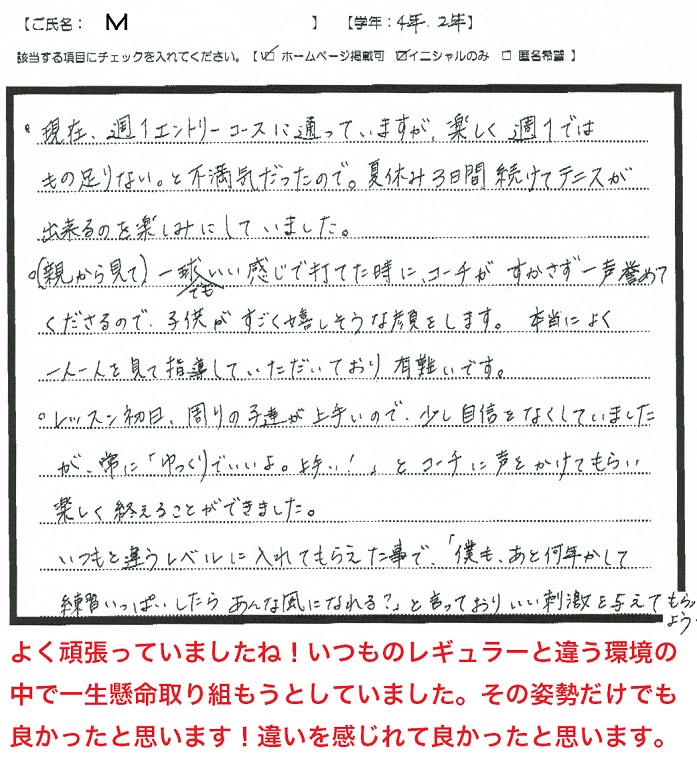 【ご氏名： M 】 【学年：4年.2年】
該当する項目にチェックを入れてください。【 ☑ ホームページ掲載可 ☑イニシャルのみ □ 匿名希望 】
。現在、週1エントリーコースに通っていますが、楽しく週1では
もの足りない。と不満気だったので。夏休み3日間続けてテニスが
出来るのを楽しみにしていました。
。(親から見て)一球でもいい感じで打てた時に、コーチがすかさず一声誉めて
くださるので、子供がすごく嬉しそうな顔をします。 本当によく
一人一人を見て指導していただいており有難いです。
。レッスン初日、周りの子達が上手いので、少し自信をなくしていました
が、常に「ゆっくりでいいよ。上手い！」とコーチに声をかけてもらい
楽しく終えることができました。
いつもと違うレベルに入れてもらえた事で、「僕も、あと何年かして
練習いっぱいしたらあんな風になれる？」と言っておりいい刺激を与えてもらっ
よう
よく頑張っていましたね！いつものレギュラーと違う環境の
中で一生懸命取り組もうとしていました。その姿勢だけでも
良かったと思います！違いを感じれて良かったと思います。